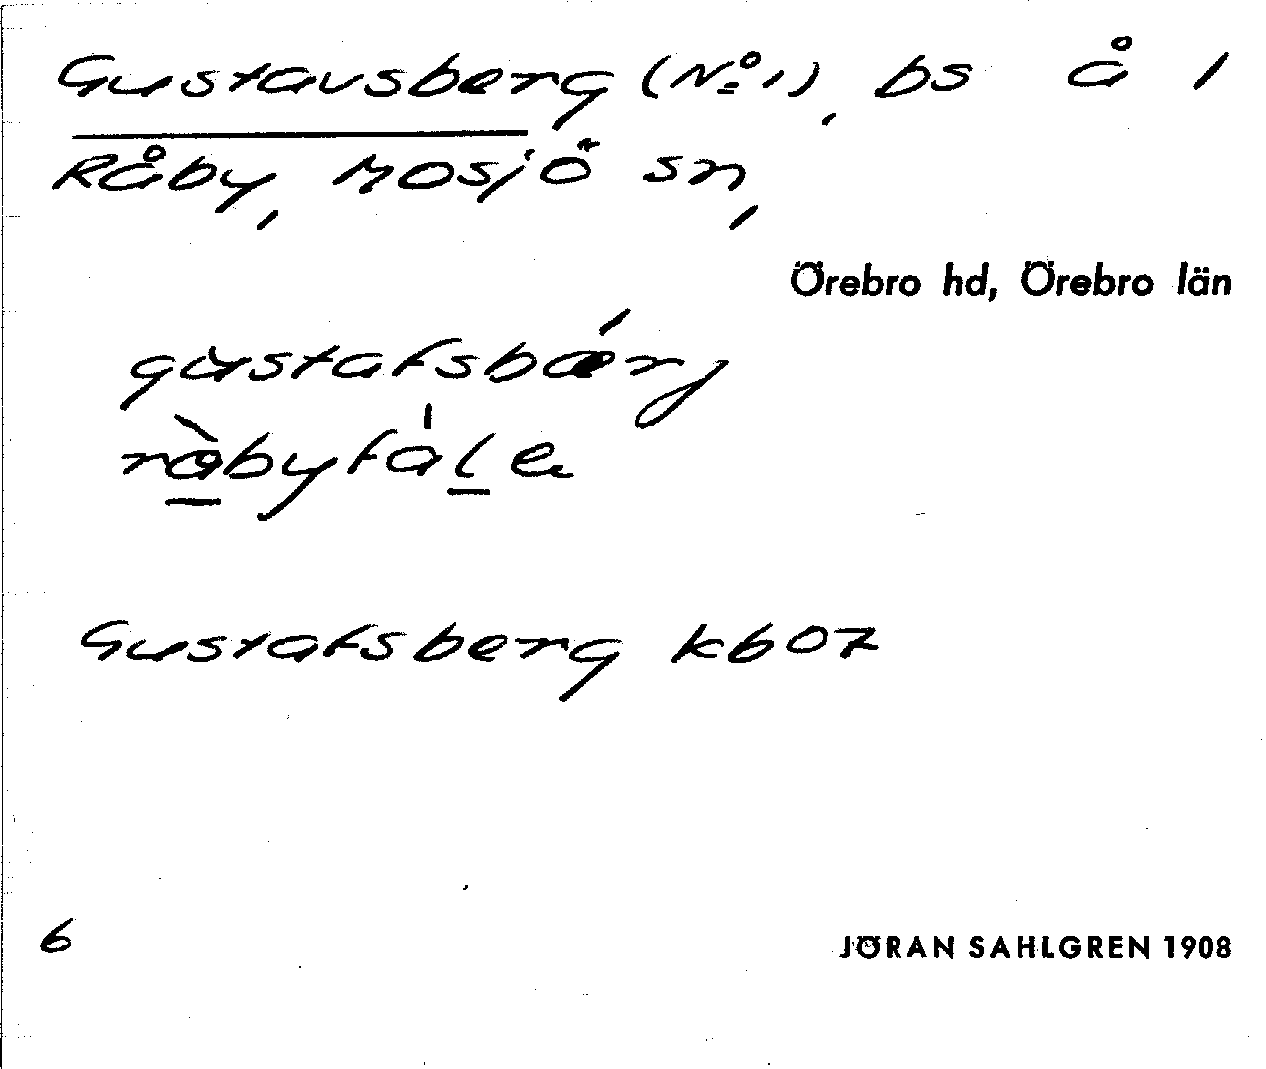 Gustavsberg (No 1), bs å 1
Råby, Mosjö sn,
Örebro hd, Örebro län
gustafsbærj
råbyfale
Gustafsberg kb 07
6
JÖRAN SAHLGREN 1908